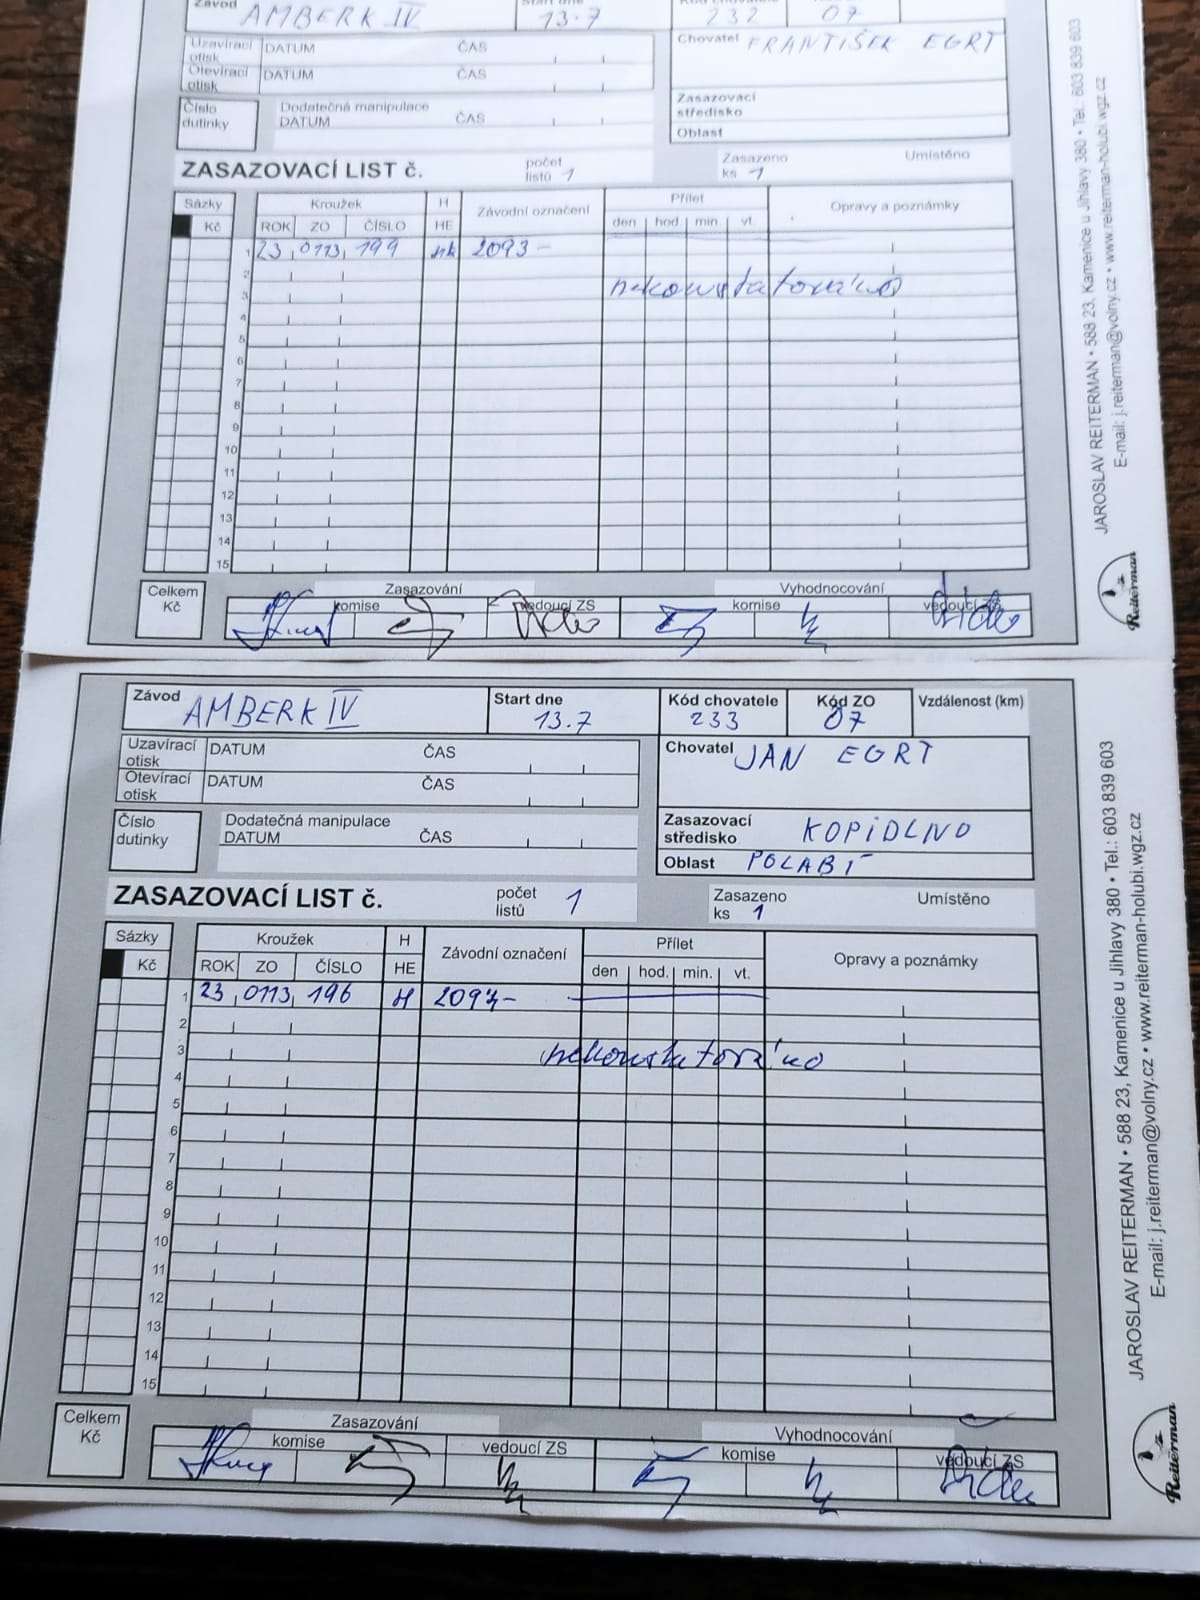 Závod AMBERK IV Start dne 13.7 Kód chovatele 232 07
Uzavírací otisk DATUM ČAS
Chovatel FRANTIŠEK EGRT
Otevírací otisk DATUM ČAS
Číslo dutinky
Dodatečná manipulace
DATUM ČAS
Zasazovací středisko
Oblast
ZASAZOVACÍ LIST č. počet listů 1 Zasazeno ks 1 Umístěno
Sázky Kroužek H Závodní označení Přílet Opravy a poznámky
Kč ROK ZO ČÍSLO HE den hod. min. vt.
1 23 0113 199 2093-
2
3 nekonstatováno
4
5
6
7
8
9
10
11
12
13
14
15
Celkem Kč
Zasazování Vyhodnocování
komise vedoucí ZS komise vedoucí ZS
JAROSLAV REITERMAN • 588 23, Kamenice u Jihlavy 380 • Tel.: 603 839 603
E-mail: j.reiterman@volny.cz • www.reiterman-holubi.wgz.cz
Reiterman
Závod AMBERK IV Start dne 13.7 Kód chovatele 233 Kód ZO 07 Vzdálenost (km)
Uzavírací otisk DATUM ČAS
Chovatel JAN EGRT
Otevírací otisk DATUM ČAS
Číslo dutinky
Dodatečná manipulace
DATUM ČAS
Zasazovací středisko KOPIDLNO
Oblast POLABÍ
ZASAZOVACÍ LIST č. počet listů 1 Zasazeno ks 1 Umístěno
Sázky Kroužek H Závodní označení Přílet Opravy a poznámky
Kč ROK ZO ČÍSLO HE den hod. min. vt.
1 23 0113 196 H 2094-
2
3 nekonstatováno
4
5
6
7
8
9
10
11
12
13
14
15
Celkem Kč
Zasazování Vyhodnocování
komise vedoucí ZS komise vedoucí ZS
JAROSLAV REITERMAN • 588 23, Kamenice u Jihlavy 380 • Tel.: 603 839 603
E-mail: j.reiterman@volny.cz • www.reiterman-holubi.wgz.cz
Reiterman